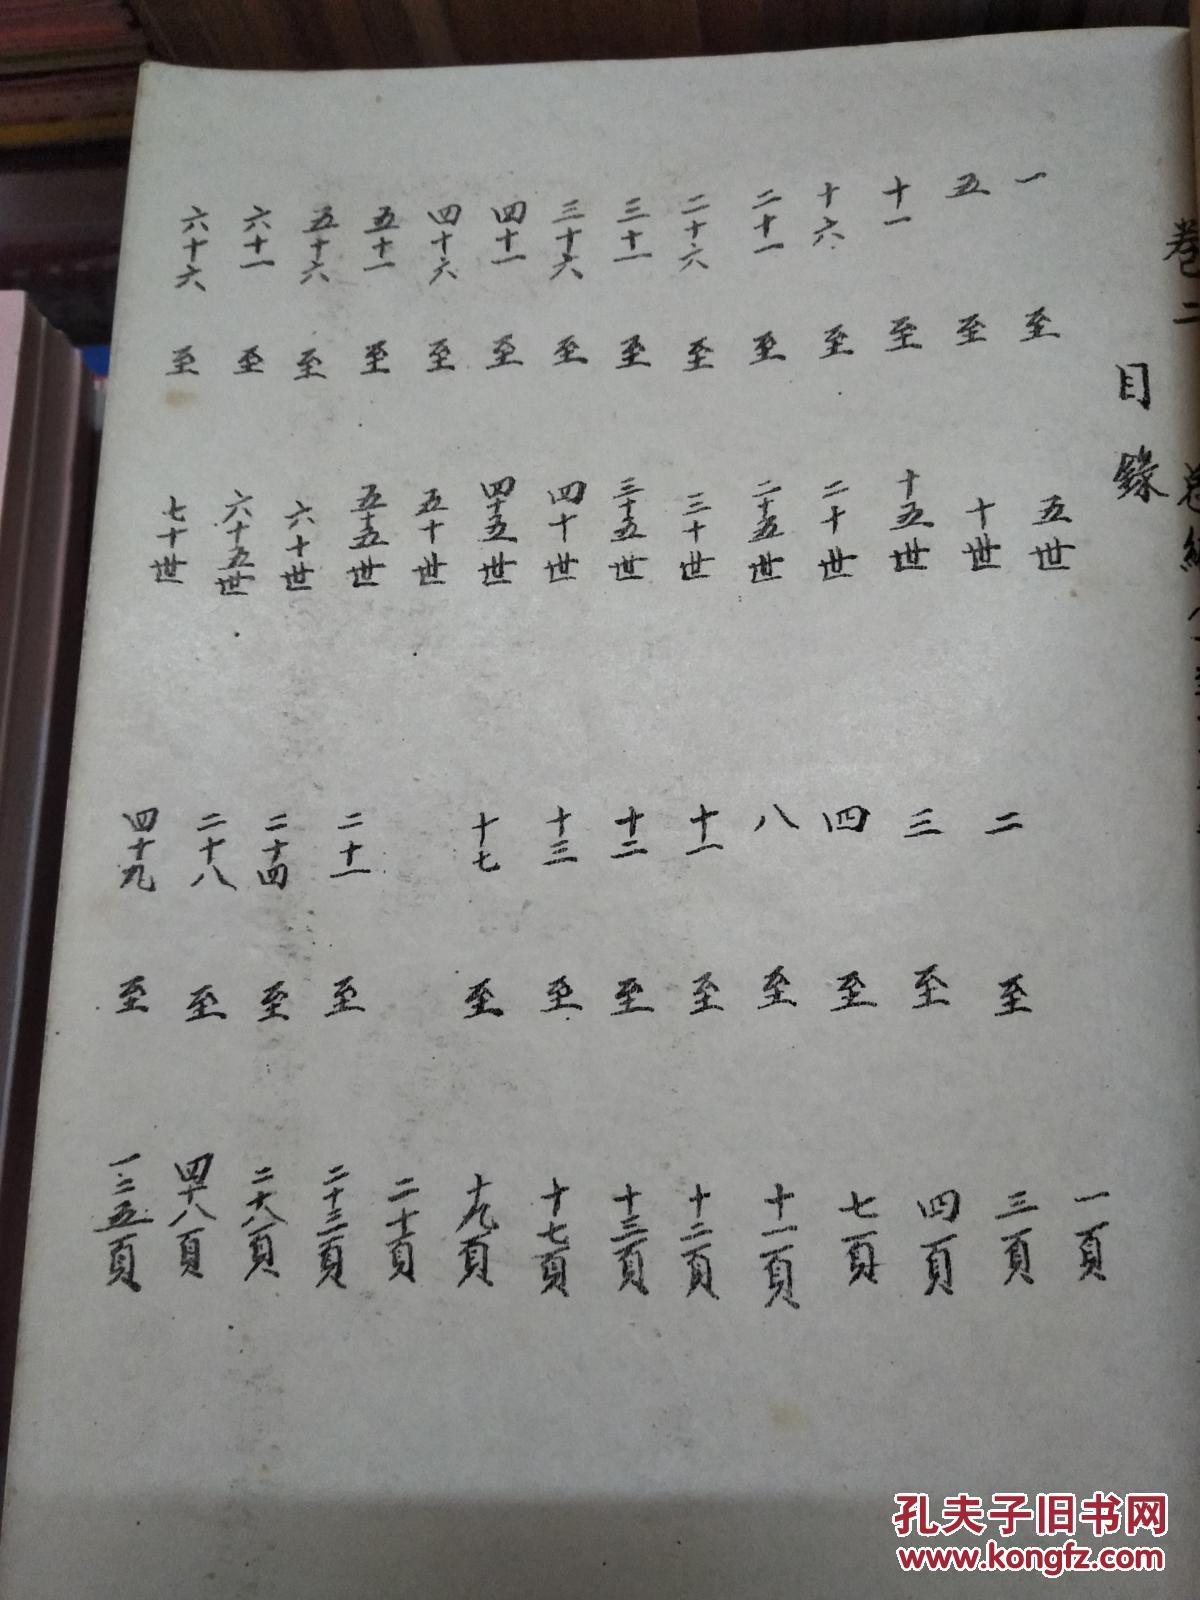 卷二
目錄
一 至 五世 一頁
五 至 十世 二 至 三頁
十一 至 十五世 三 至 四頁
十六 至 二十世 四 至 七頁
二十一 至 二十五世 八 至 十一頁
二十六 至 三十世 十一 至 十二頁
三十一 至 三十五世 十二 至 十三頁
三十六 至 四十世 十三 至 十七頁
四十一 至 四十五世 十七 至 十九頁
四十六 至 五十世 二十頁
五十一 至 五十五世 二十一 至 二十三頁
五十六 至 六十世 二十四 至 二十八頁
六十一 至 六十五世 二十八 至 四十八頁
六十六 至 七十世 四十九 至 一二五頁
孔夫子旧书网
www.kongfz.com